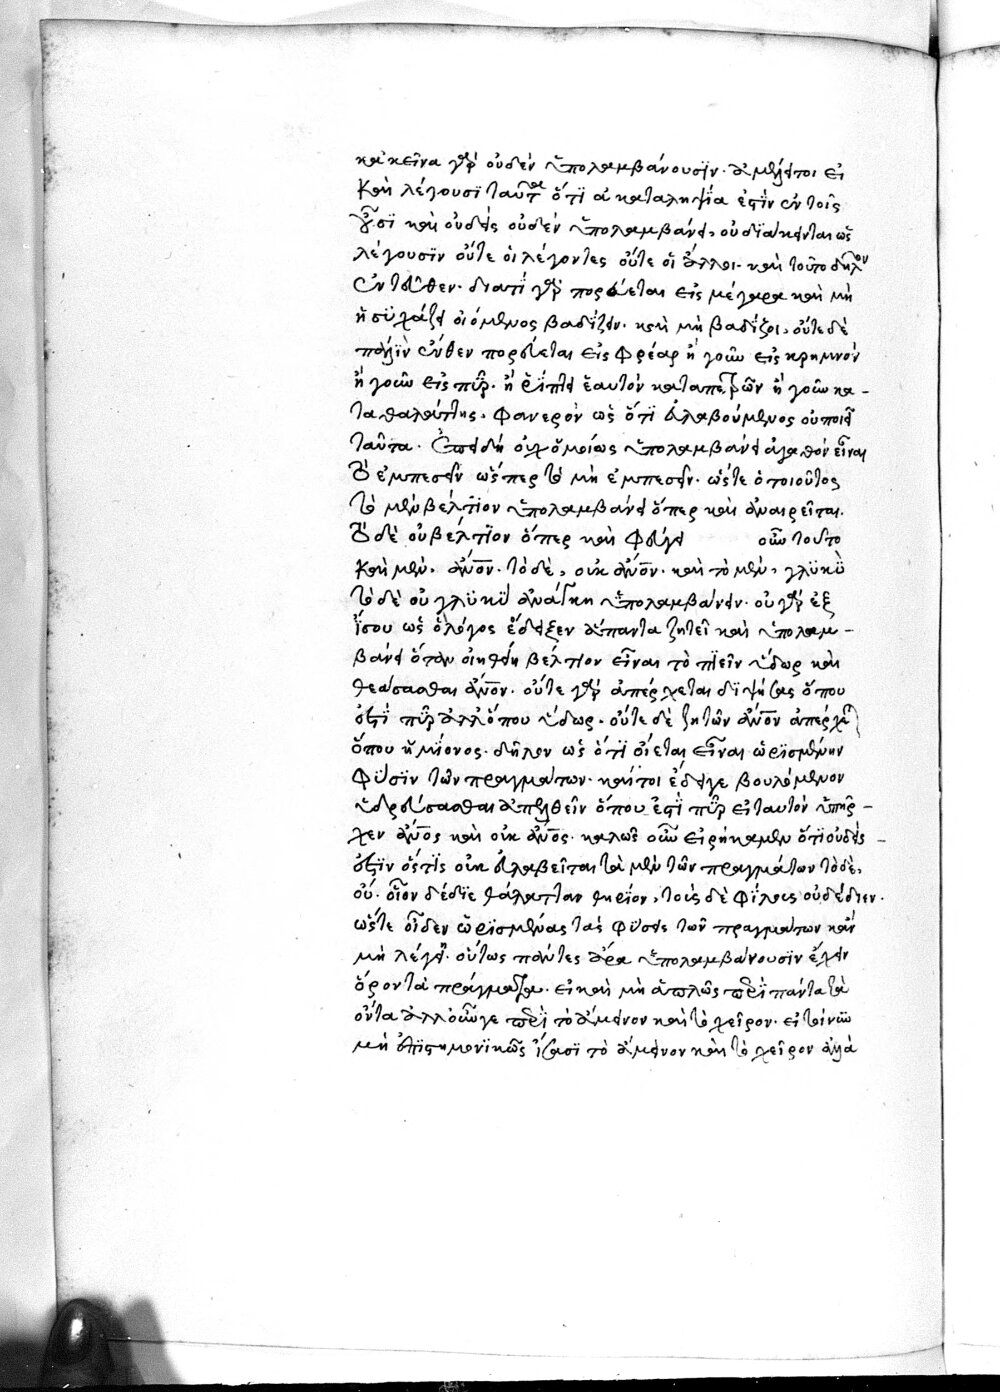 κἀκεῖνα γὰρ οὐδὲν ὑπολαμβάνουσϊν· ἀμέλει τοι εἰ
καὶ λέγουσι ταῦτα ὅτϊ ἀκαταληψΐα ἐστὶν ἐν τοῖς
οὖσϊ καὶ οὐδεὶς οὐδὲν ὑπολαμβάνει, οὐ διάκεινται ὡς
λέγουσϊν οὔτε οἱ λέγοντες οὔτε οἱ ἄλλοι· καὶ τοῦτο δῆλον
ἐντεῦθεν· διατί γὰρ πορεύεται εἰς μέγαρα καὶ μὴ
ἡσϋχάζει οἰόμενος βαδίζειν· καὶ μὴ βαδίζοι, οὔτε δὲ
πάλϊν ἕωθεν πορεύεται εἰς φρέαρ ἢ γοῦν εἰς κρημνὸν
ἢ γοῦν εἰς πῦρ· ἢ ῥίπτει ἑαυτὸν κατὰ πετρῶν ἢ γοῦν κα-
τὰ θαλάττης· φανερὸν ὡς ὅτϊ εὐλαβούμενος οὐ ποιεῖ
ταῦτα· ἐπειδὴ οὐχ ὁμοίως ὑπολαμβάνει ἀγαθὸν εἶναι
τὸ ἐμπεσεῖν ὥσπερ τὸ μὴ ἐμπεσεῖν· ὥστε ὁ τοιοῦτος
τὸ μὲν βέλτϊον ὑπολαμβάνει ὅπερ καὶ ἀναιρεῖται·
τὸ δὲ οὐ βέλτϊον ὅπερ καὶ φεύγει οὖν τοῦτο
καὶ μὲν, ἄνον· τὸ δὲ, οὐκ ἄνον· καὶ τὸ μὲν, γλϋκὺ
τὸ δὲ οὐ γλϋκὺ ἀνάγκη ὑπολαμβάνειν· οὐ γὰρ ἐξ
ἴσου ὡς ὁ λόγος ἔδειξεν ἅπαντα ζητεῖ καὶ ὑπολαμ-
βάνει ὅταν οἰηθείη βέλτιον εἶναι τὸ πϊεῖν ὕδωρ καὶ
θεάσασθαι ἄνον· οὔτε γὰρ ἀπέρχεται διψήσας ὅπου
ἐστὶ πῦρ ἀλλ' ὅπου ὕδωρ· οὔτε δὲ ζητῶν ἄνον ἀπέρχε
ὅπου ἡμΐονος· δῆλον ὡς ὅτϊ οἴεται εἶναι ὡρϊσμένην
φύσϊν τῶν πραγμάτων· καίτοι ἔδει γε βουλόμενον
ὑδρεύσασθαι ἀπελθεῖν ὅπου ἐστὶ πῦρ εἰ ταυτὸν ὑπῆρ-
χεν ἄνος καὶ οὐκ ἄνος· καλῶς οὖν εἰρήκαμεν ὅτι οὐδείς
ἐστϊν ὅστϊς οὐκ εὐλαβεῖται τὰ μὲν τῶν πραγμάτων τὸ δὲ,
οὔ· οἷον δέδϊε θάλατταν θηρίον, τοὺς δὲ φΐλους οὐ δέδιεν·
ὥστε οἶδεν ὡρϊσμένας τὰς φύσεις τῶν πραγμάτων κἂν
μὴ λέγῃ· οὕτως πάντες ἄρα ὑπολαμβάνουσϊν ἔχειν
ὅρον τὰ πράγματα· εἰ καὶ μὴ ἁπλῶς περὶ πάντα τὰ
ὄντα ἀλλ' οὖν γε περὶ τὸ ἄμεινον καὶ τὸ χεῖρον· εἰ τοίνυν
μὴ ἐπϊστημονϊκῶς ἴσασϊ τὸ ἄμεινον καὶ τὸ χεῖρον ἀλλὰ